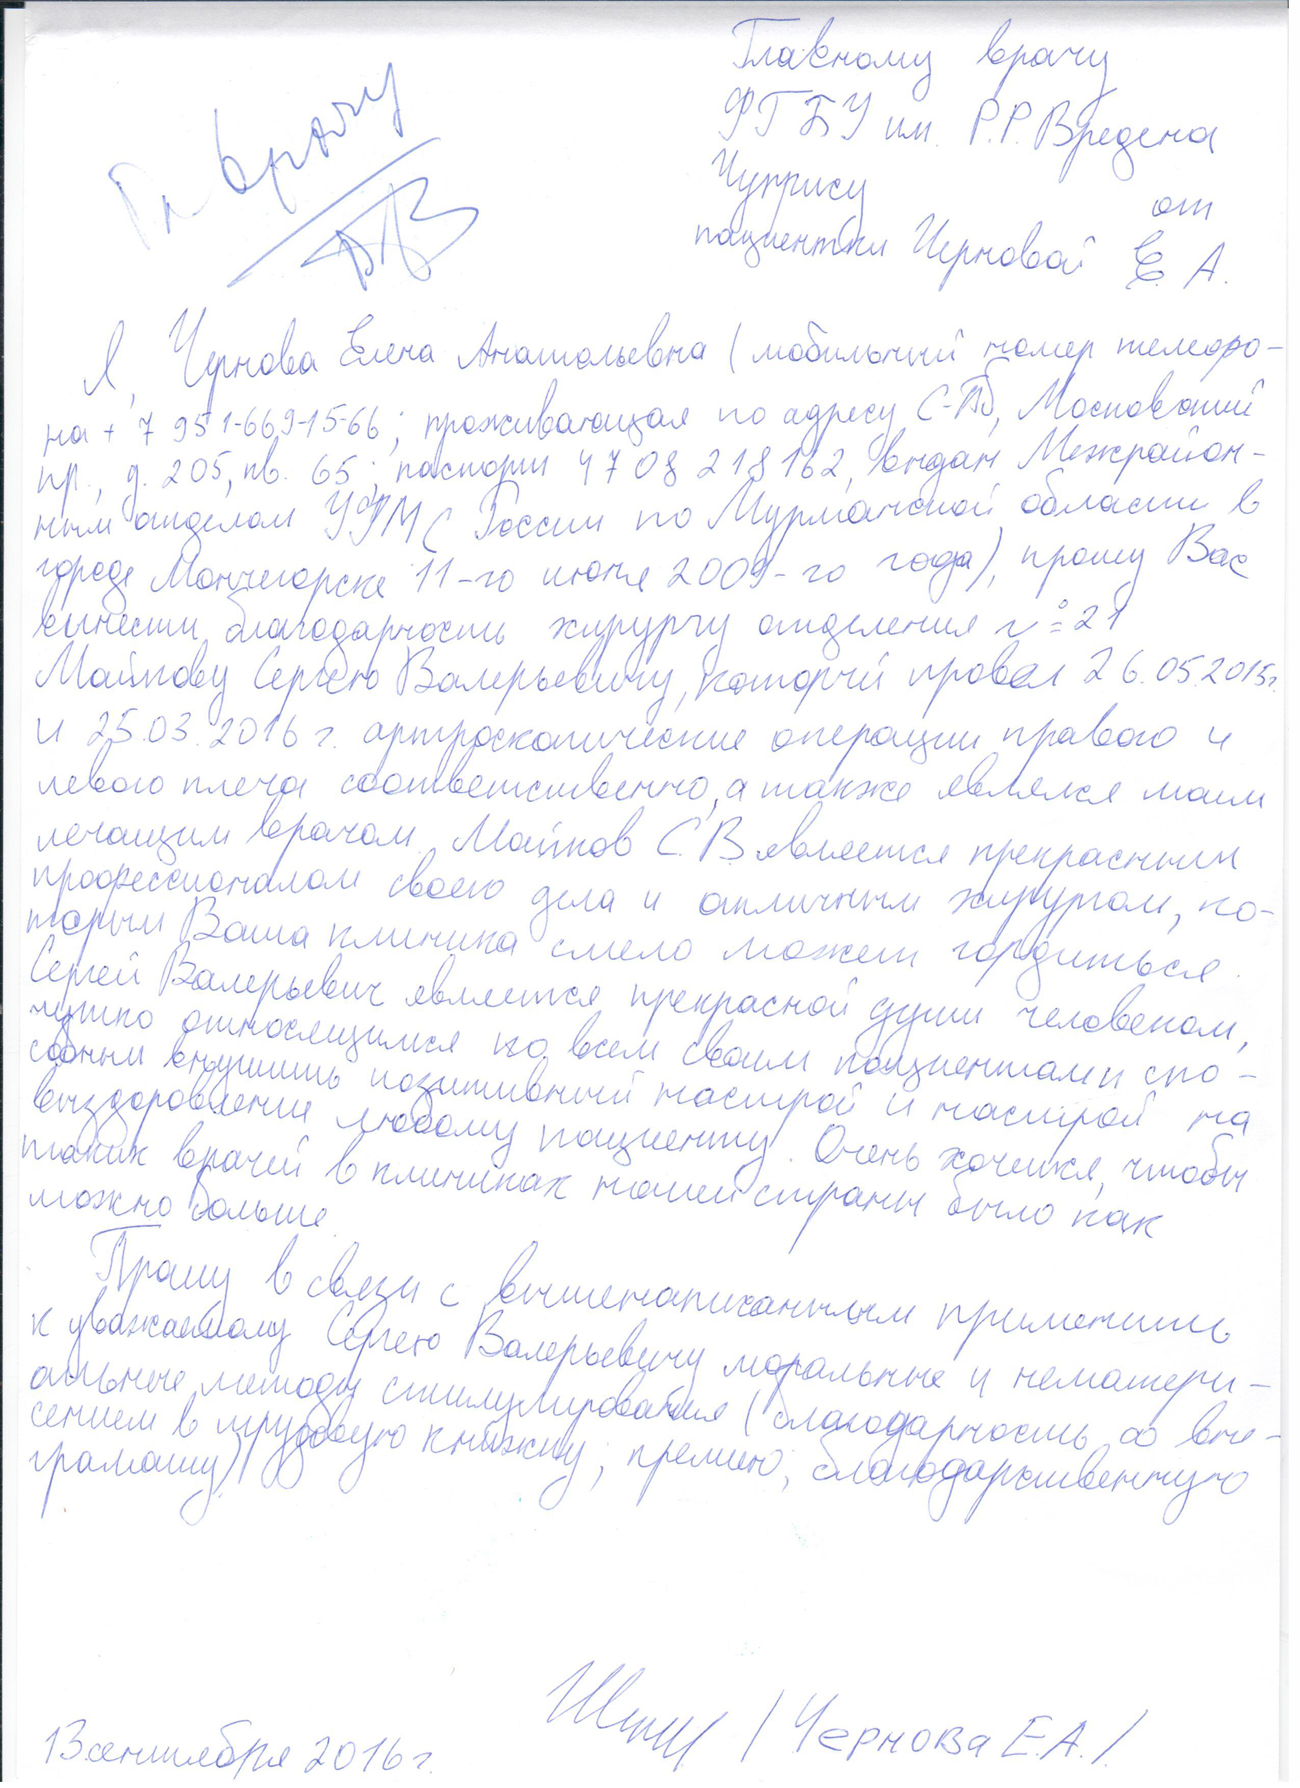 Гл врачу
Главному врачу
ФГБУ им. Р.Р. Вредена
от
пациентки Черновой Е. А.
Я, Чернова Елена Анатольевна (мобильный номер телефо-
на + 7 951-669-15-66; проживающая по адресу С-Пб, Московский
пр., д. 205, кв. 65; паспорт 47 08 218162, выдан Межрайон-
ным отделом УФМС России по Мурманской области в
городе Мончегорске 11-го июня 2009-го года), прошу Вас
вынести благодарность хирургу отделения №21
Майкову Сергею Валерьевичу, который провел 26.05.2015г.
и 25.03.2016 г. артроскопические операции правого и
левого плеча соответственно, а также являлся моим
лечащим врачом. Майков С.В. является прекрасным
профессионалом своего дела и отличным хирургом, ко-
торым Ваша клиника смело может гордиться.
Сергей Валерьевич является прекрасной души человеком,
чутко относящимся ко всем своим пациентам и спо-
собным внушить позитивный настрой и настрой на
выздоровление любому пациенту. Очень хочется, чтобы
таких врачей в клиниках нашей страны было как
можно больше.
Прошу в связи с вышенаписанным применить
к уважаемому Сергею Валерьевичу моральные и нематери-
альные методы стимулирования (благодарность со вне-
сением в трудовую книжку; премию; благодарственную
грамоту)
/ Чернова Е.А. /
13 сентября 2016 г.